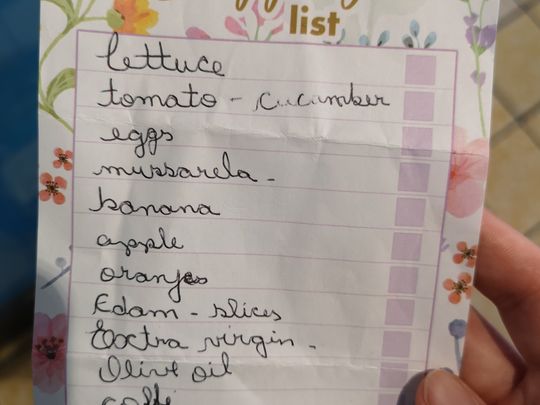 list
lettuce
tomato - cucumber
eggs
mussarela -
banana
apple
oranjes
Edam - slices
Extra virgin -
Olive oil